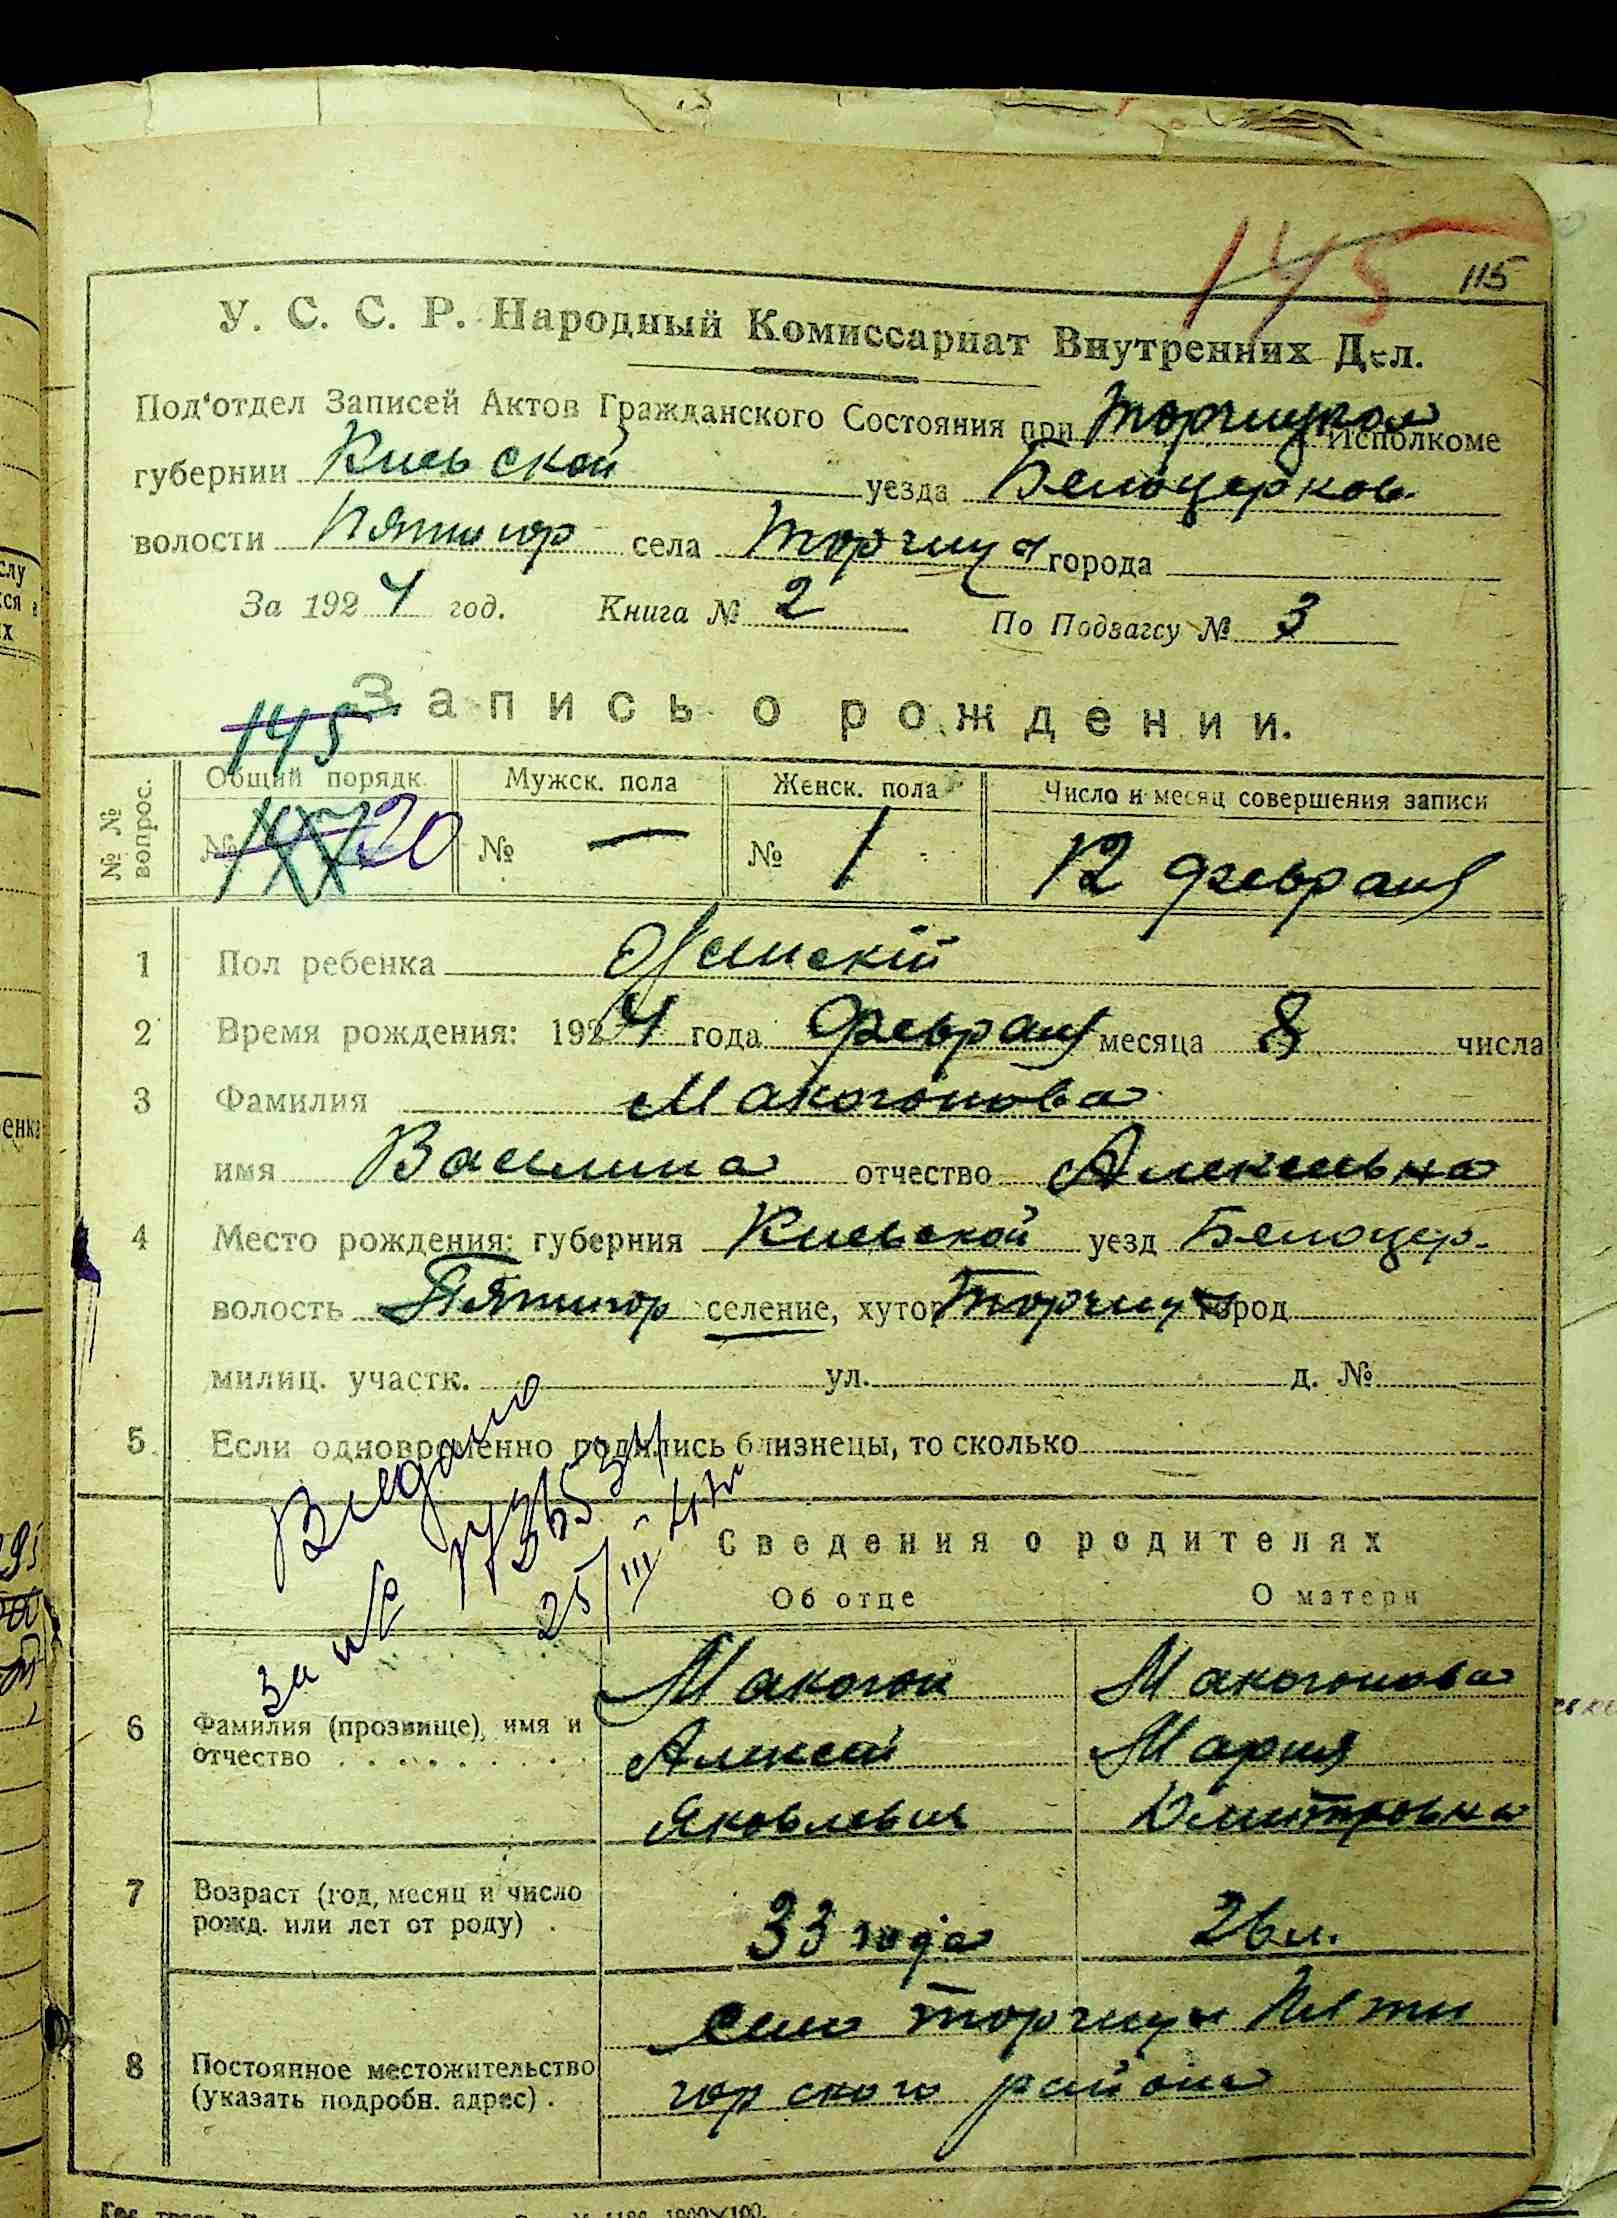 145
115
У. С. С. Р. Народный Комиссариат Внутренних Дел.
Под'отдел Записей Актов Гражданского Состояния при Торчицком Исполкоме
губернии Киевской уезда Белоцерков.
волости Пятигор села Торчица города
За 1924 год. Книга № 2 По Подзагсу № 3
Запись о рождении.
145
№ № вопрос. Общий порядк. Мужск. пола Женск. пола Число и месяц совершения записи
№ 20 № — № 1 12 февраля
1 Пол ребенка Женский
2 Время рождения: 1924 года февраля месяца 8 числа
3 Фамилия Макогонова
имя Василина отчество Алексеевна
4 Место рождения: губерния Киевской уезд Белоцер.
волость Пятигор селение, хутор Торчица город
милиц. участк. ул. д. №
5 Если одновременно родились близнецы, то сколько
Видано
за №
25/III-43
Сведения о родителях
Об отце О матери
Макогон Макогонова
6 Фамилия (прозвище), имя и Алексей Мария
отчество Яковлевич Дмитровна
7 Возраст (год, месяц и число
рожд. или лет от роду) 33 года 26 л.
село Торчица Пяти
8 Постоянное местожительство горского района
(указать подробн. адрес)